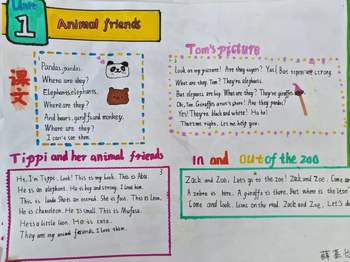 Unit
1
Animal friends
课文
Pandas, pandas.
Where are they?
Elephants, elephants,
Where are they?
And bears, giraffes and monkey.
Where are they?
I can't see them.
Tom's picture
Look at my picture! Are they tigers? Yes! But tigers are strong.
What are they, Tom? They're elephants.
But elephants are big. What are they? They're giraffes
Oh, Tom. Giraffes aren't short! Are they pandas?
Yes! They're black and white! Ha ha!
That's not right. Let me help you.
Tippi and her animal friends
Hi, I'm Tippi. Look! This is my book. This is Abu.
He is an elephant. He is big and strong. I love him.
This is Linda. She is an ostrich. She is fast. This is Leon.
He is chameleon. He is small. This is Mufasa.
He is a little lion. He is cute.
They are my animal friends. I love them.
In and out of the zoo
Zack and Zoe. Let's go to the zoo! Zack and Zoe. Come
A zebra is here. A giraffe is there. But where is the lion?
Come and look. Lions on the road. Zack and Zoe. Let's